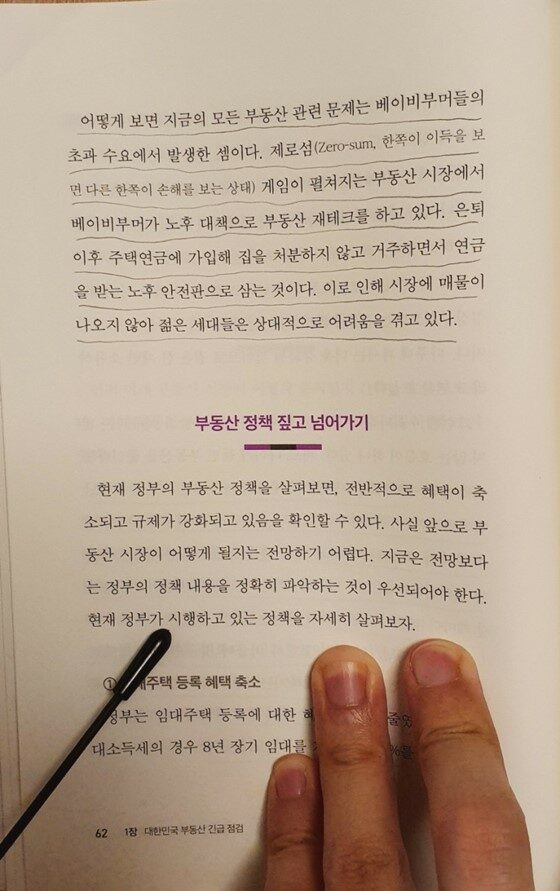 어떻게 보면 지금의 모든 부동산 관련 문제는 베이비부머들의
초과 수요에서 발생한 셈이다. 제로섬(Zero-sum, 한쪽이 이득을 보
면 다른 한쪽이 손해를 보는 상태) 게임이 펼쳐지는 부동산 시장에서
베이비부머가 노후 대책으로 부동산 재테크를 하고 있다. 은퇴
이후 주택연금에 가입해 집을 처분하지 않고 거주하면서 연금
을 받는 노후 안전판으로 삼는 것이다. 이로 인해 시장에 매물이
나오지 않아 젊은 세대들은 상대적으로 어려움을 겪고 있다.
부동산 정책 짚고 넘어가기
현재 정부의 부동산 정책을 살펴보면, 전반적으로 혜택이 축
소되고 규제가 강화되고 있음을 확인할 수 있다. 사실 앞으로 부
동산 시장이 어떻게 될지는 전망하기 어렵다. 지금은 전망보다
는 정부의 정책 내용을 정확히 파악하는 것이 우선되어야 한다.
현재 정부가 시행하고 있는 정책을 자세히 살펴보자.
① 대주택 등록 혜택 축소
정부는 임대주택 등록에 대한
대소득세의 경우 8년 장기 임대를
62 1장 대한민국 부동산 긴급 점검